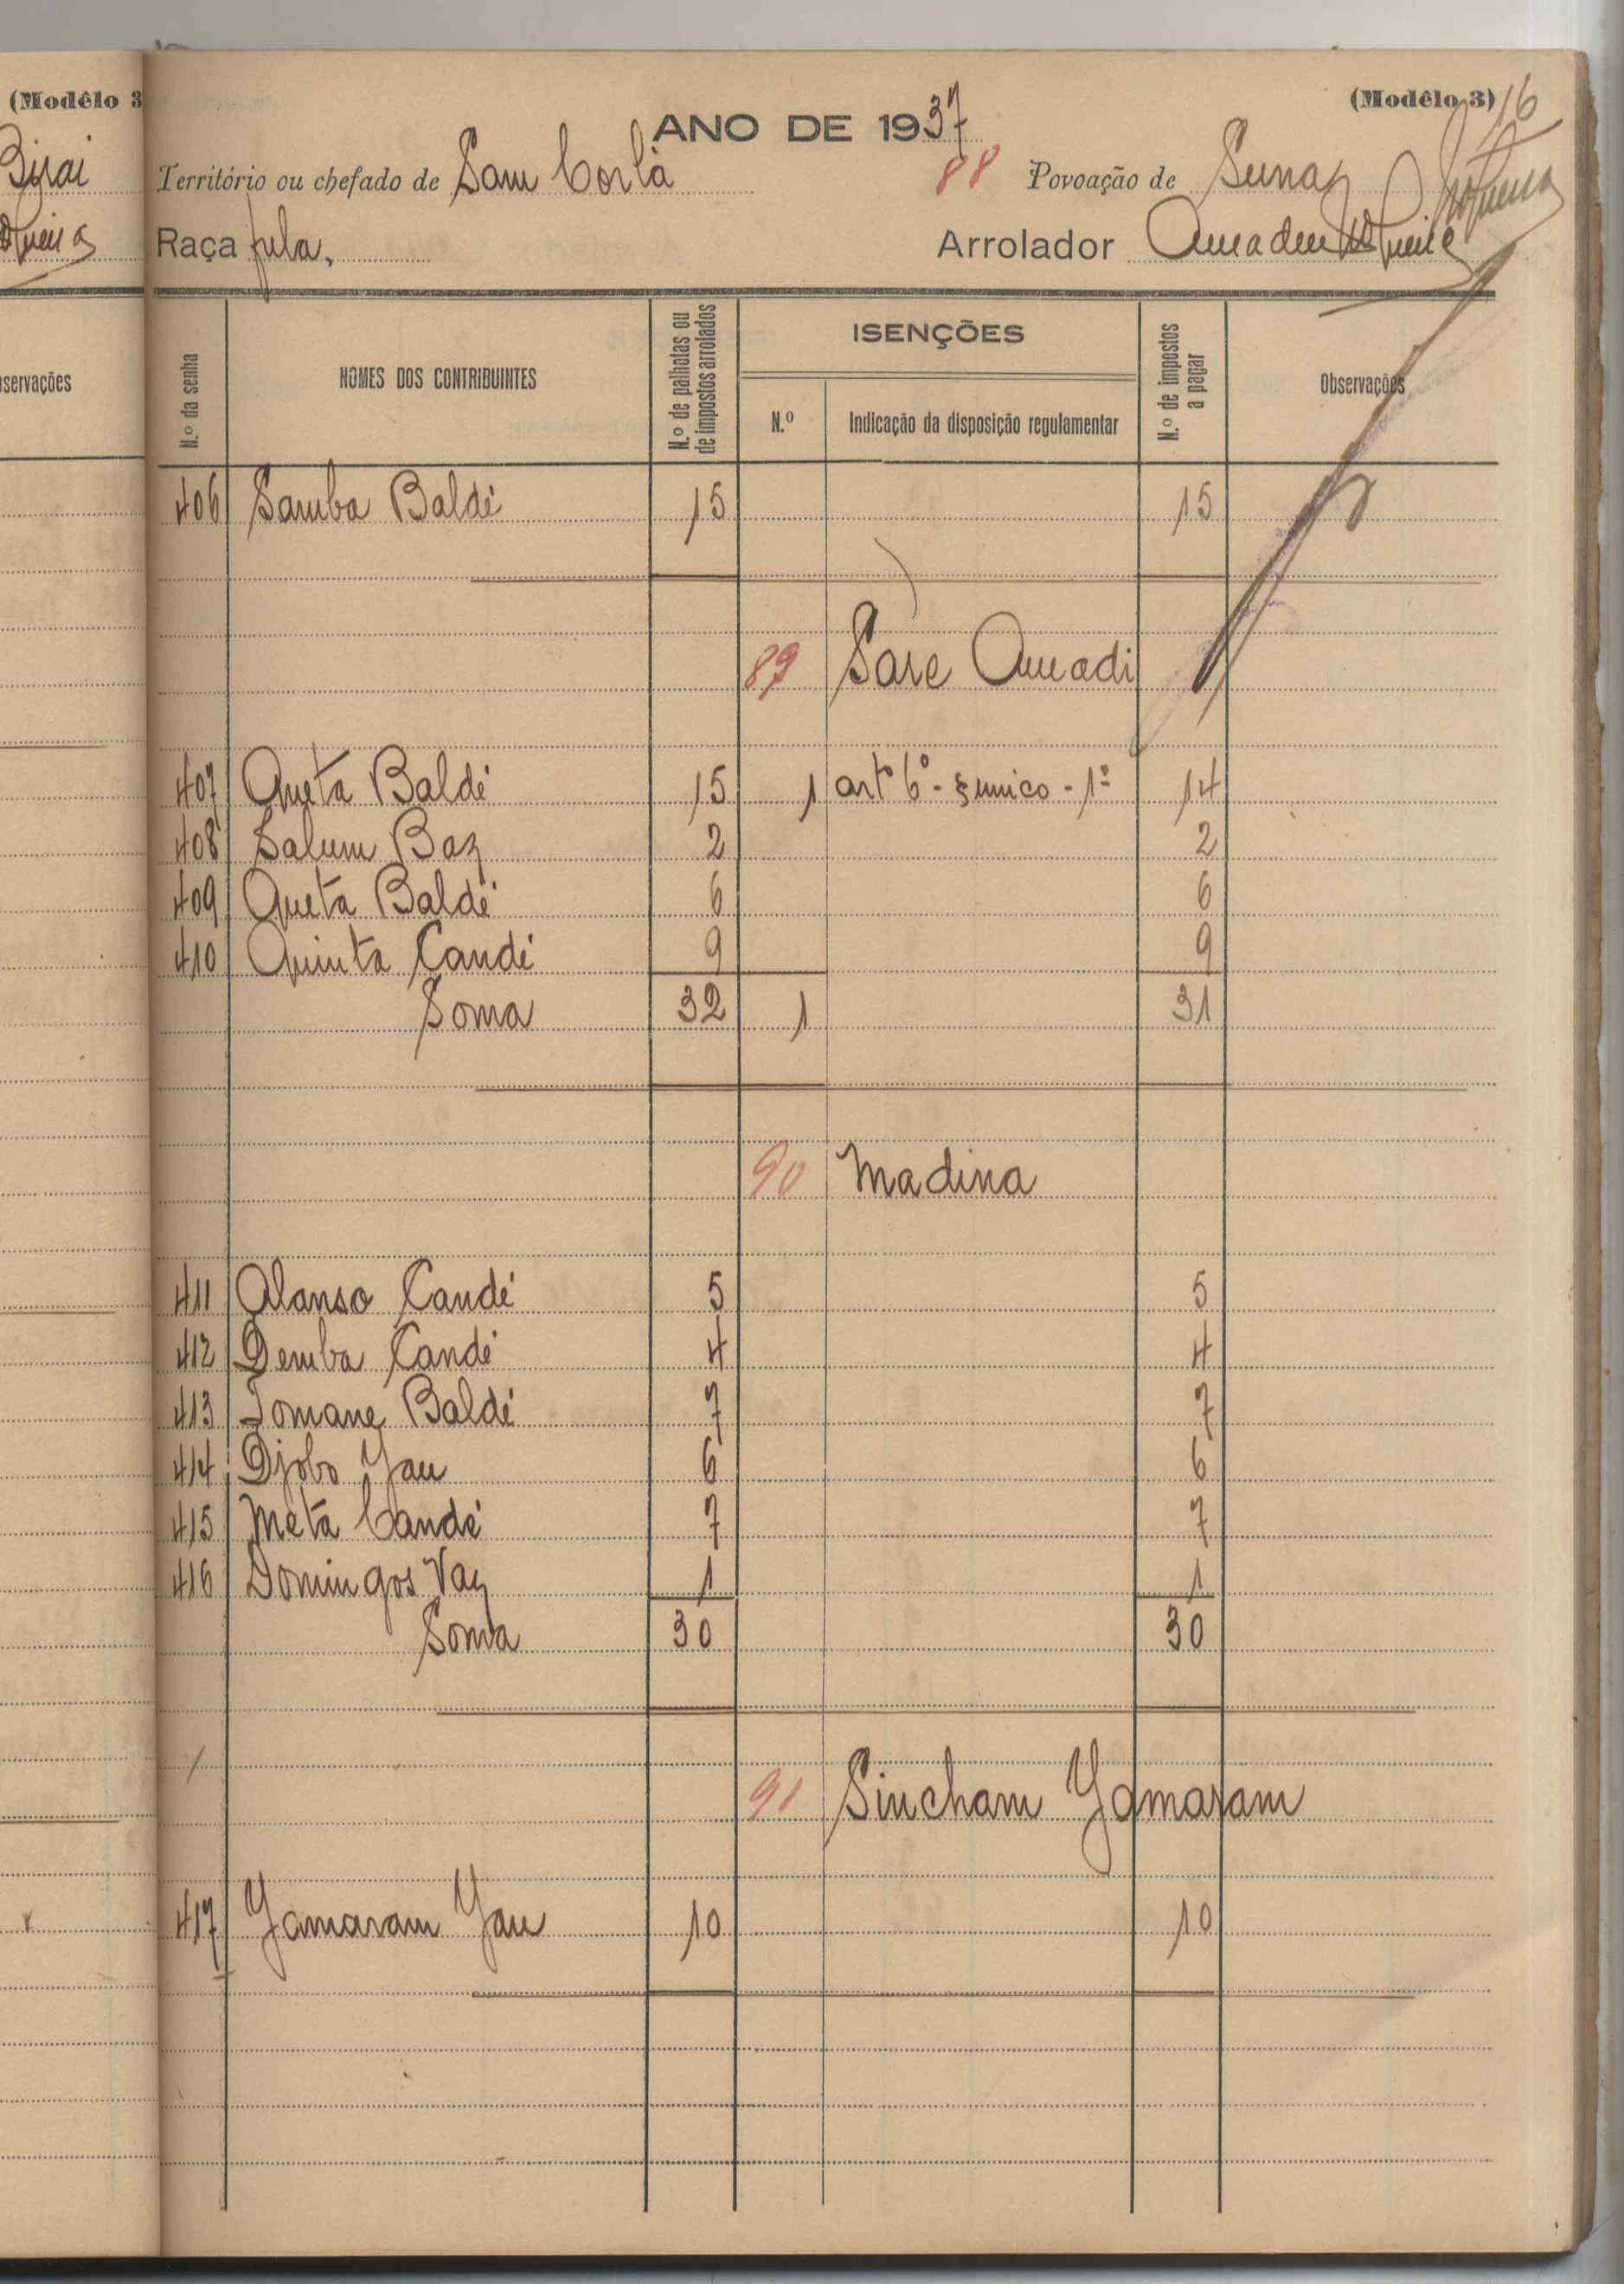 (Modêlo 3
servações
(Modêlo 3) 16
ANO DE 1937
Território ou chefado de Sam Corlá 88 Povoação de
Raça fula. Arrolador Amadeu
N.º da senha NOMES DOS CONTRIBUINTES N.º de palhotas ou de impostos arrolados ISENÇÕES N.º Indicação da disposição regulamentar N.º de impostos a pagar Observações
406 Samba Baldé 15 15
89 Sare Amadi
407 Queta Baldé 15 1 art.º 6º - § unico - 1º 14
408 Salum Baz 2 2
409 Queta Baldé 6 6
410 Quinta Candé 9 9
Soma 32 1 31
90 Madina
411 Alanso Candé 5 5
412 Demba Candé 4 4
413 Tomane Baldé 7 7
414 Djobo Jau 6 6
415 Meta Candé 7 7
416 Domingos Vaz 1 1
Soma 30 30
91 Sincham Jamaram
417 Jamaram Jau 10 10